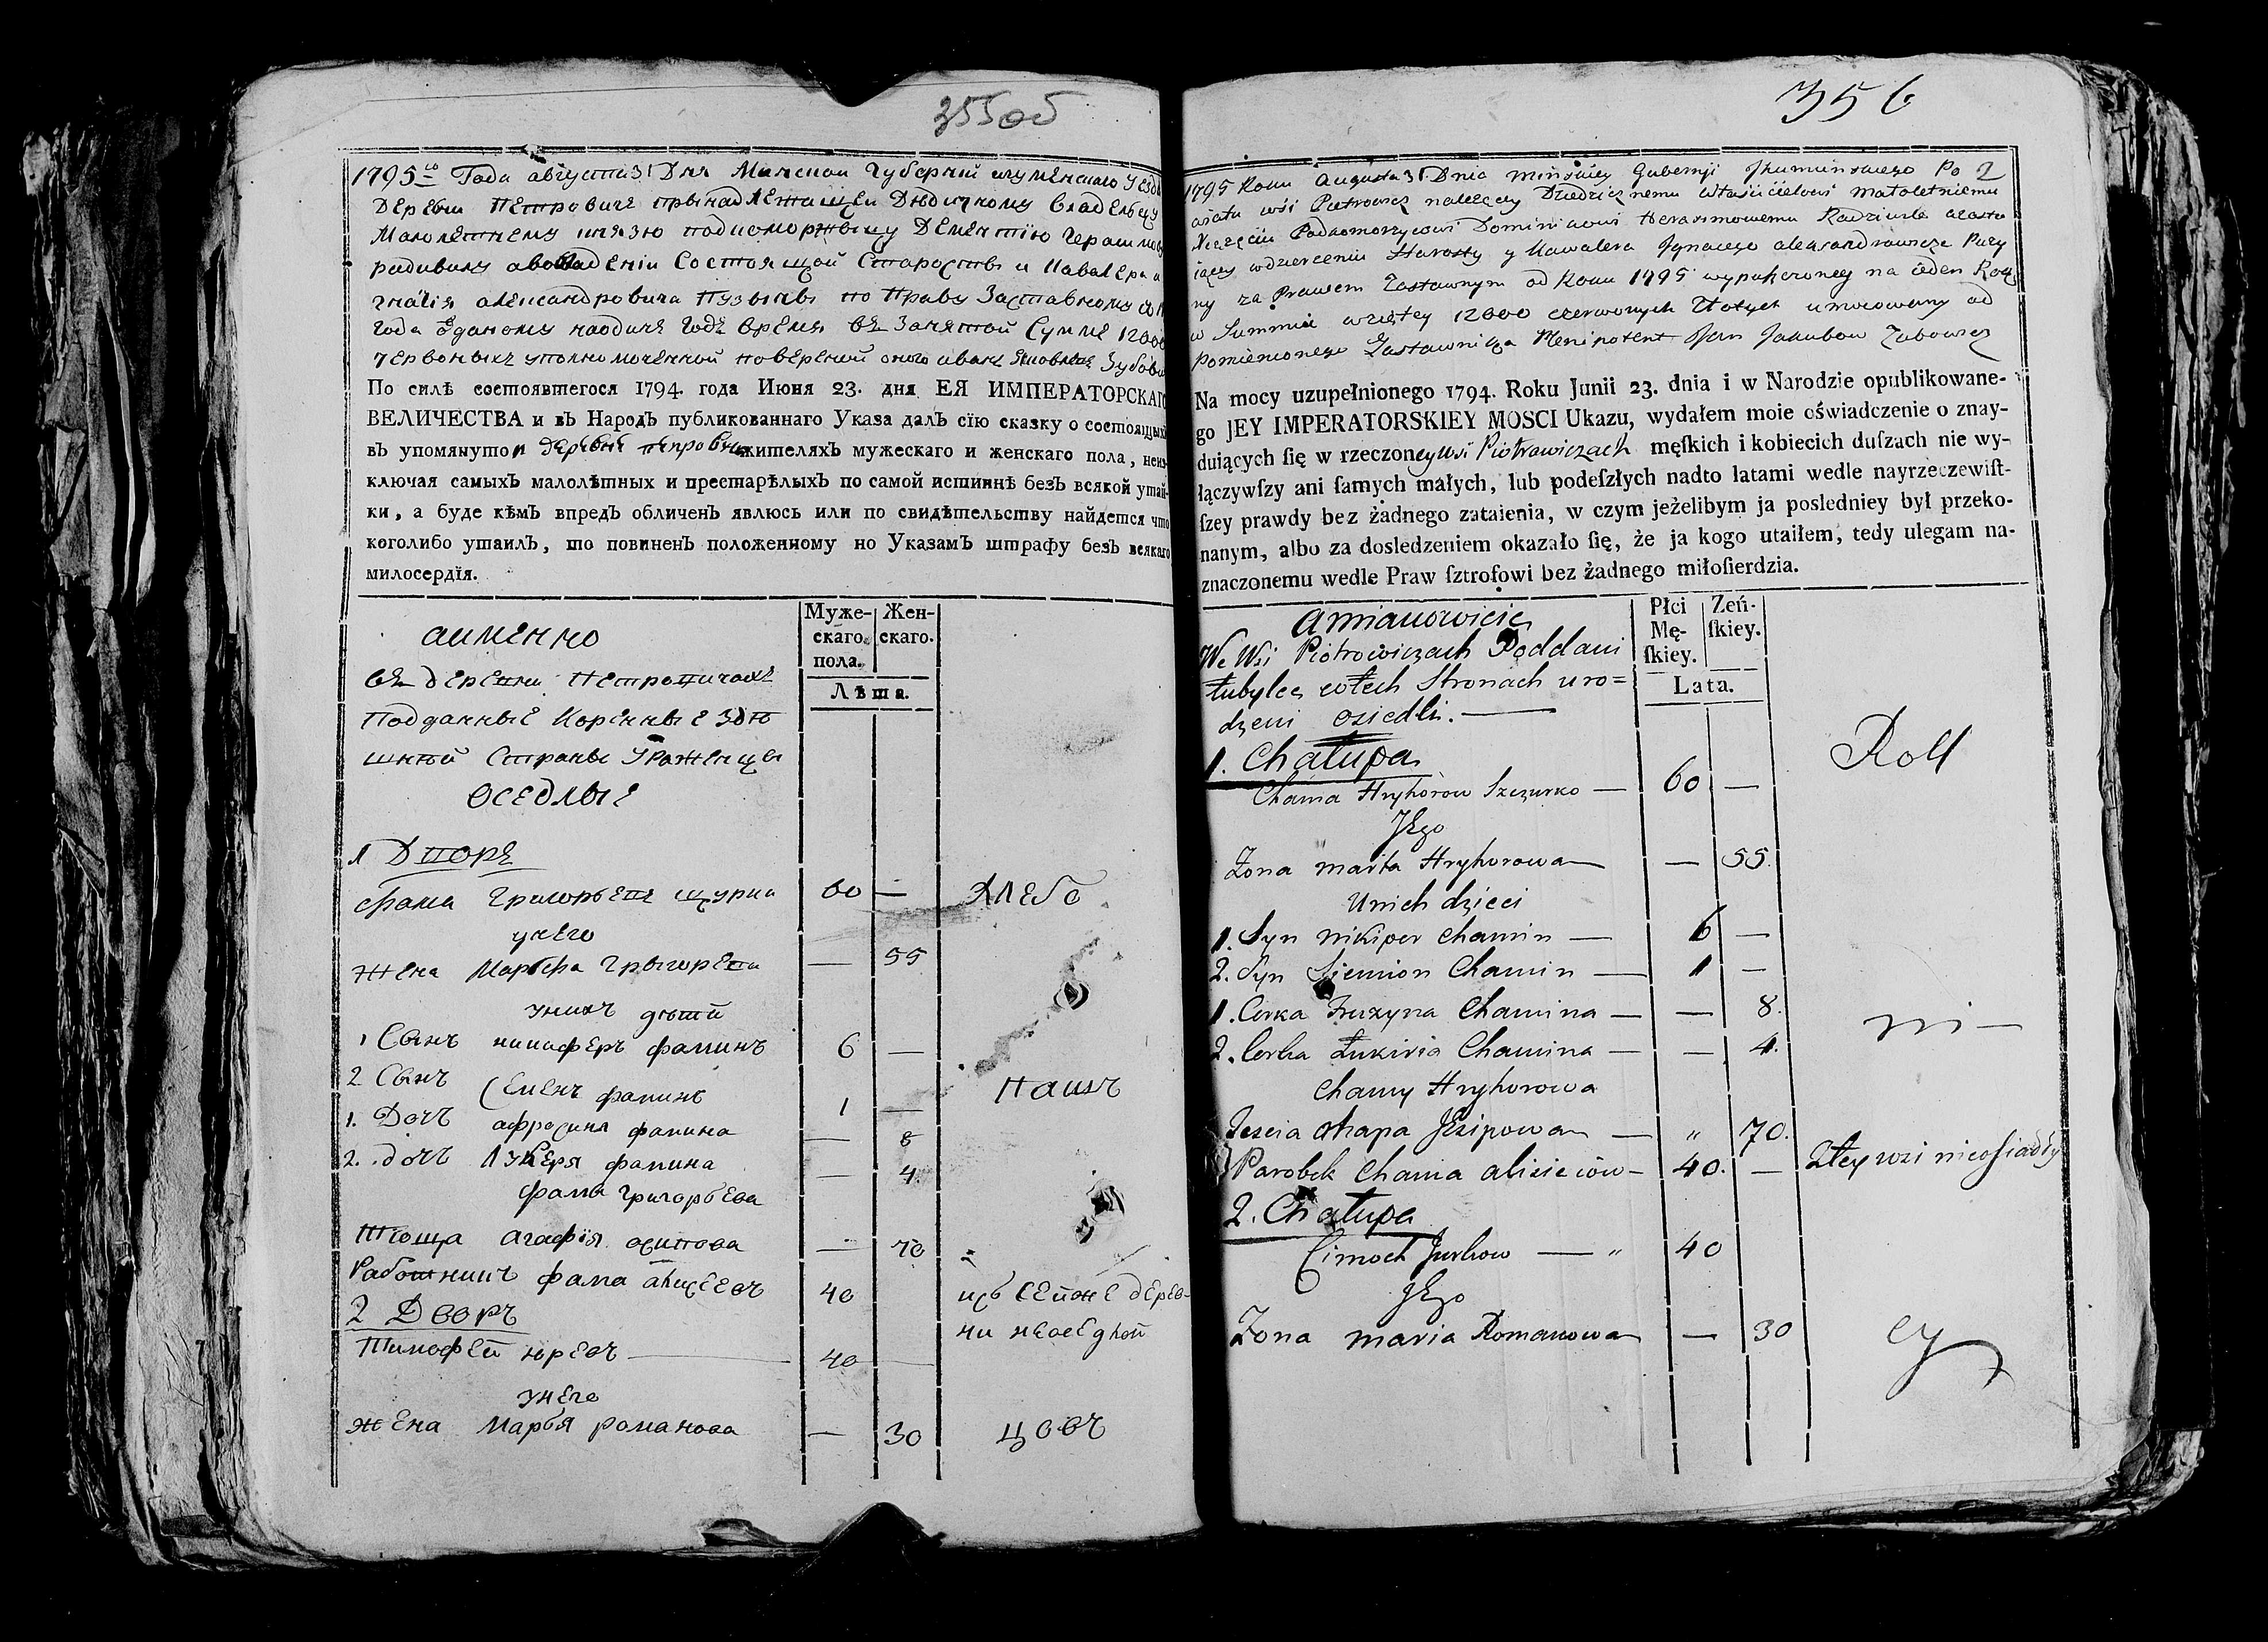 355об
1795го Года августа 31 Дня Минской Губернїи игуменскаго уезда
Деревни Петровичъ принадлежащей Дѣдичному владельцу
Малолетнему князю подкоморжыцу Дементїю Герасимову
радивилу а во владенїи Состоящой Старосты и Кавалера и
гнатїя александровича Пузыны по Праву Заставному
года отданому на одинъ годъ время въ Занятой Сумме 12000
червоныхъ уполномоченной повереной оного иванъ Яковлевъ Зубови
По силѣ состоявшегося 1794. года Июня 23. дня ЕЯ ИМПЕРАТОРСКАГО
ВЕЛИЧЕСТВА и въ Народъ публикованнаго Указа далъ сїю сказку о состоящихъ
въ упомянутой деревне петрович жителяхъ мужескаго и женскаго пола, неис-
ключая самыхъ малолѣтныхъ и престарѣлыхъ по самой истиннѣ безъ всякой утай-
ки, а буде кѣмъ впредъ обличенъ явлюсь или по свидѣтельству найдется что
коголибо утаилъ, то повиненъ положенному по Указамъ штрафу безъ всякаго
милосердїя.
аименно
въ деревни Петровичахъ
подданные Коренные здѣ
шнѣй Страны Уроженцы
оседлые
Муже-
скаго
пола.
Жен-
скаго.
Лѣта.
1 Дворъ
фама Григорьевъ щурка 60 — Хлебо
унего
жена Марьфа Грыгорева — 55
унихъ дѣтй
1 Сынъ никиферъ фаминъ 6 —
2 Сынъ Семенъ фаминъ 1 — пашъ
1. Дочъ афросиня фамина — 8
2. дочъ Лукеря фамина — 4
фама Григорьева
тюща агафїя осипова — 70
Работникъ фама 40 изъ сейже дерев-
ни неоседлой
2 Дворъ
Тимофей юревъ — 40 —
унего
жена Марья романова — 30 цовъ
356
1795 Roku Augusta 31 Dnia minskiey Gubernji Jhuminskiego Po 2
wiatu wsi Pietrowicz należący Dziedzicznemu własticielowi małoletniemu
Xiezęciu Podkomorzycowi Dominikowi Herasimowemu Radziwile a zasta
iący w dzierzeniu Starosty y Kawalera Jgnacego Aleksandrowicza Puzy
ny za Prawem Zastawnym od Roku 1795 wypuszczoney na ieden Rok
w Summie wziętey 12000 czerwonych Złotych umocowany od
Pomienionego Zastawnika Plenipotent Jan Jakubow Zubowicz
Na mocy uzupełnionego 1794. Roku Junii 23. dnia i w Narodzie opublikowane-
go JEY IMPERATORSKIEY MOSCI Ukazu, wydałem moie oświadczenie o znay-
duiących ſię w rzeczoney wsi Piotrowiczach męſkich i kobiecich duſzach nie wy-
łączywſzy ani ſamych małych, lub podeſzłych nadto latami wedle nayrzeczewiſt-
ſzey prawdy bez żadnego zataienia, w czym jeżelibym ja posledniey był przeko-
nanym, albo za dosledzeniem okazało ſię, że ja kogo utaiłem, tedy ulegam na-
znaczonemu wedle Praw ſztrofowi bez żadnego miłoſierdzia.
a mianowicie
We Wsi Piotrowiczach Poddani
tubylcy w tech Stronach uro=
dzeni osiedli. —
Płci
Mę-
ſkiey.
Zeń-
ſkiey.
Lata.
1. Chałupa
Roll
Chama Hryhorow Szczurko — 60 —
Jego
Zona marta Hryhorowa — 55.
Unich dzieci
1. Syn nikiper Chamin — 6 —
2. Syn Siemion Chamin — 1 —
1. Corka Fruzyna Chamina — — 8.
ni —
2. Corka Łukiria Chamina — — 4.
Chamy Hryhorowa
Teścia ahapa Jesipowa — „ 70.
Parobek Chama alisieiów — 40. — Ztey wsi nieosiadły
2. Chałupa
Cimoch Jurkow — „ 40
Jego
Zona maria Romanowa — 30
cy